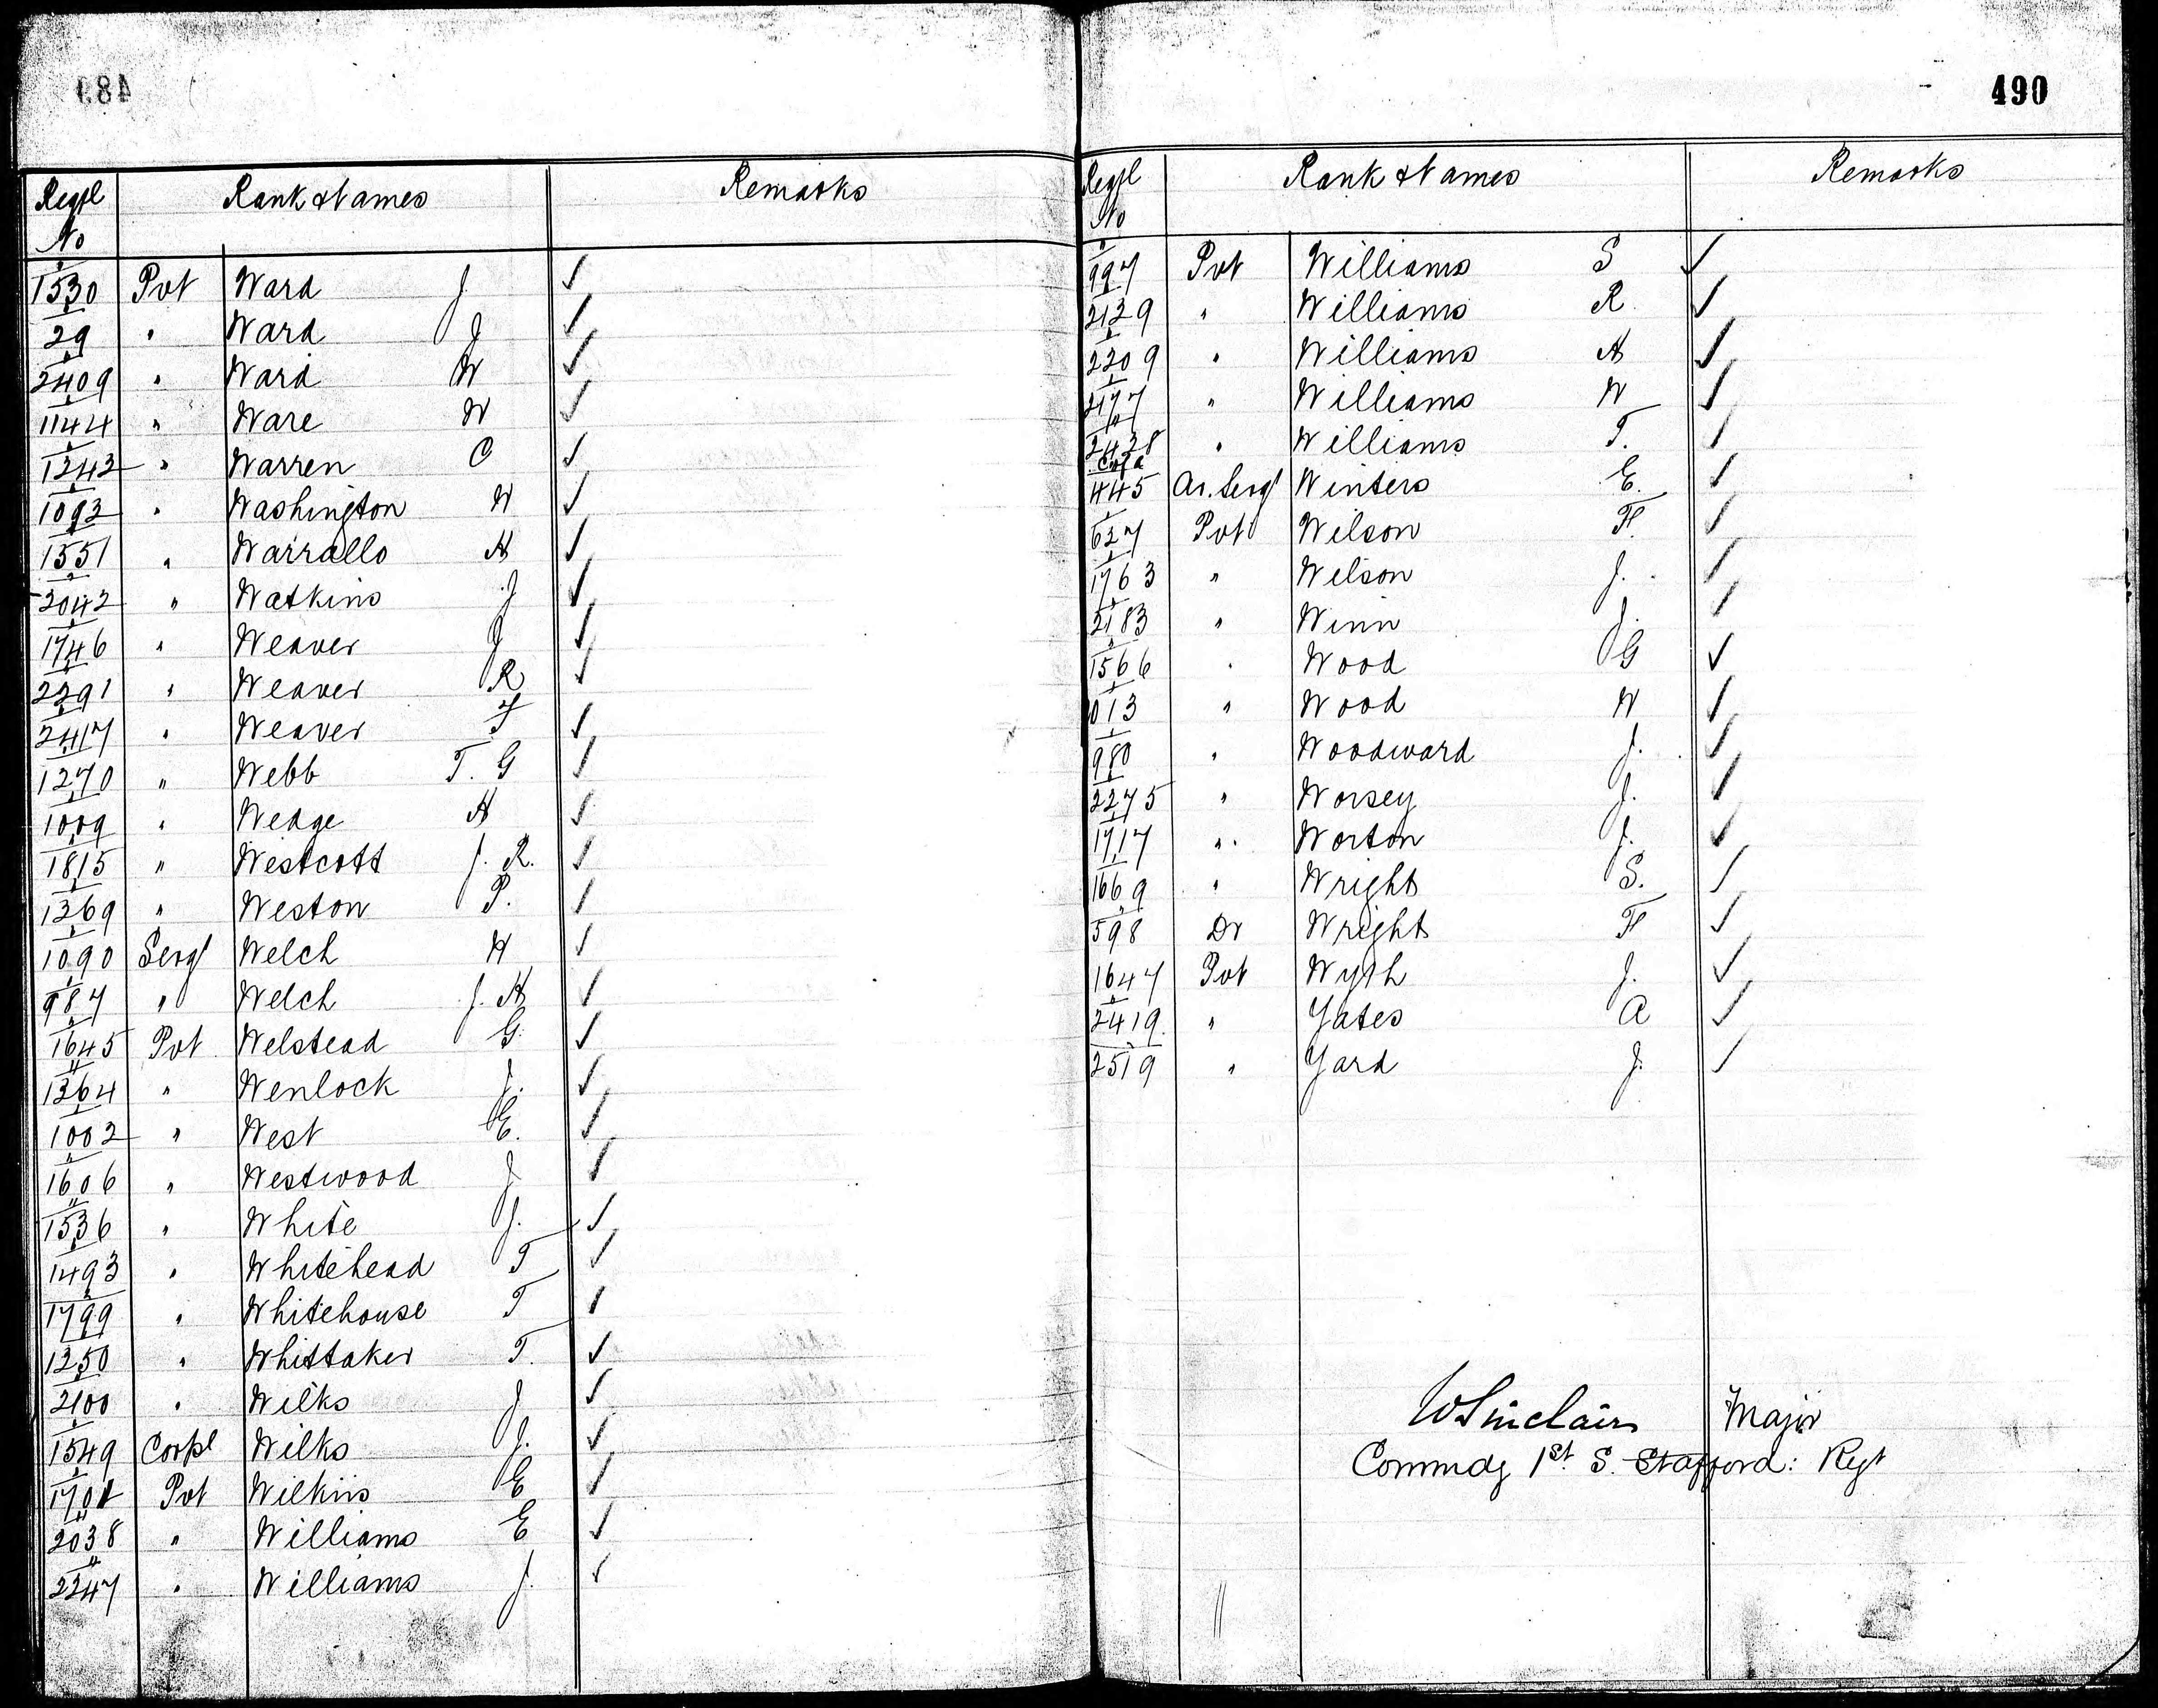 489
Regtl No Rank & Names Remarks
1530 Pvt Ward J ✓
29 " Ward J ✓
2409 " Ward W ✓
1144 " Ware W ✓
1243 " Warren C ✓
1093 " Washington W ✓
1551 " Warrallo H ✓
2042 " Watkins J ✓
1746 " Weaver J ✓
2291 " Weaver R ✓
2417 " Weaver T ✓
1270 " Webb T. G ✓
1009 " Wedge H ✓
1815 " Westcott J. R. ✓
1369 " Weston P. ✓
1090 Sergt Welch H ✓
987 " Welch J. H ✓
1645 Pvt Welstead G. ✓
1364 " Wenlock J. ✓
1002 " West E. ✓
1606 " Westwood J ✓
1536 " White J. ✓
1493 " Whitehead T ✓
1799 " Whitehouse T ✓
1250 " Whittaker T. ✓
2100 " Wilks J ✓
1549 Corpl Wilks J. ✓
Pvt Wilkins E ✓
2038 " Williams E ✓
2247 " Williams J. ✓
490
Regtl No Rank & Names Remarks
997 Pvt Williams S ✓
2129 " Williams R ✓
2209 " Williams H ✓
2177 " Williams W ✓
2428 " Williams T. ✓
445 Ar. Sergt Winters E. ✓
627 Pvt Wilson F. ✓
1763 " Wilson J. ✓
2183 " Winn J. ✓
1566 " Wood G ✓
013 " Wood W ✓
980 " Woodward J. ✓
2275 " Worsey J. ✓
1717 " Worton J. ✓
1669 " Wright S. ✓
598 Dr Wright F ✓
1647 Pvt Wyth J. ✓
2419 " Yates A ✓
2519 " Yard J. ✓
W Sinclair Major
Commdg 1st S. Stafford: Regt